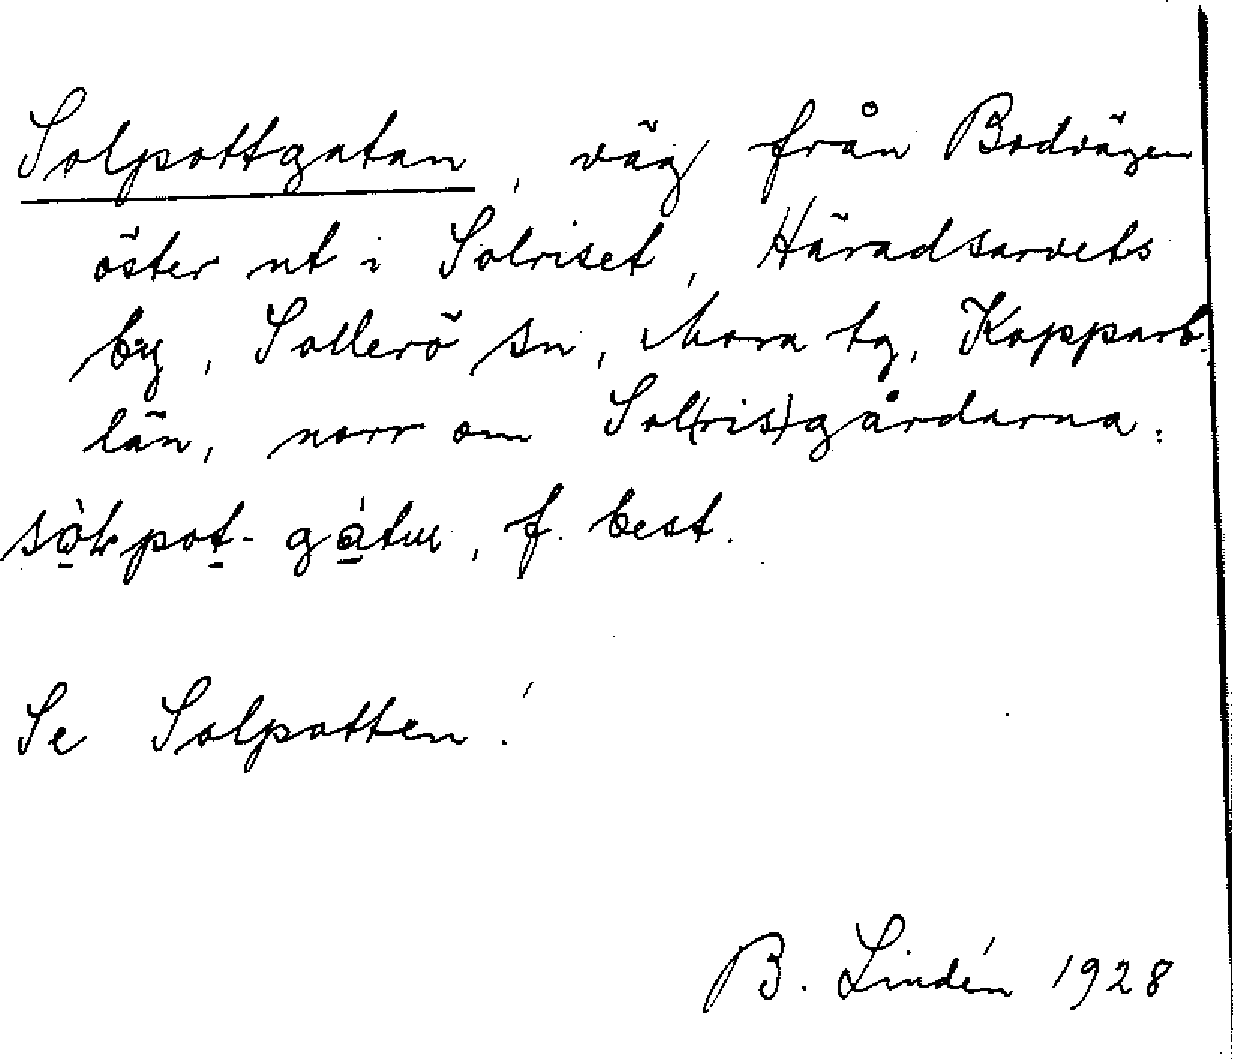 Solpottgatan, väg från Bodvägen
öster ut i Solriset, Häradsarvets
by, Sollerö sn, Mora tg, Kopparb.
län, norr om Sol(ris)gårdarna.
f. best.
Se Solpotten!
B. Lindén 1928